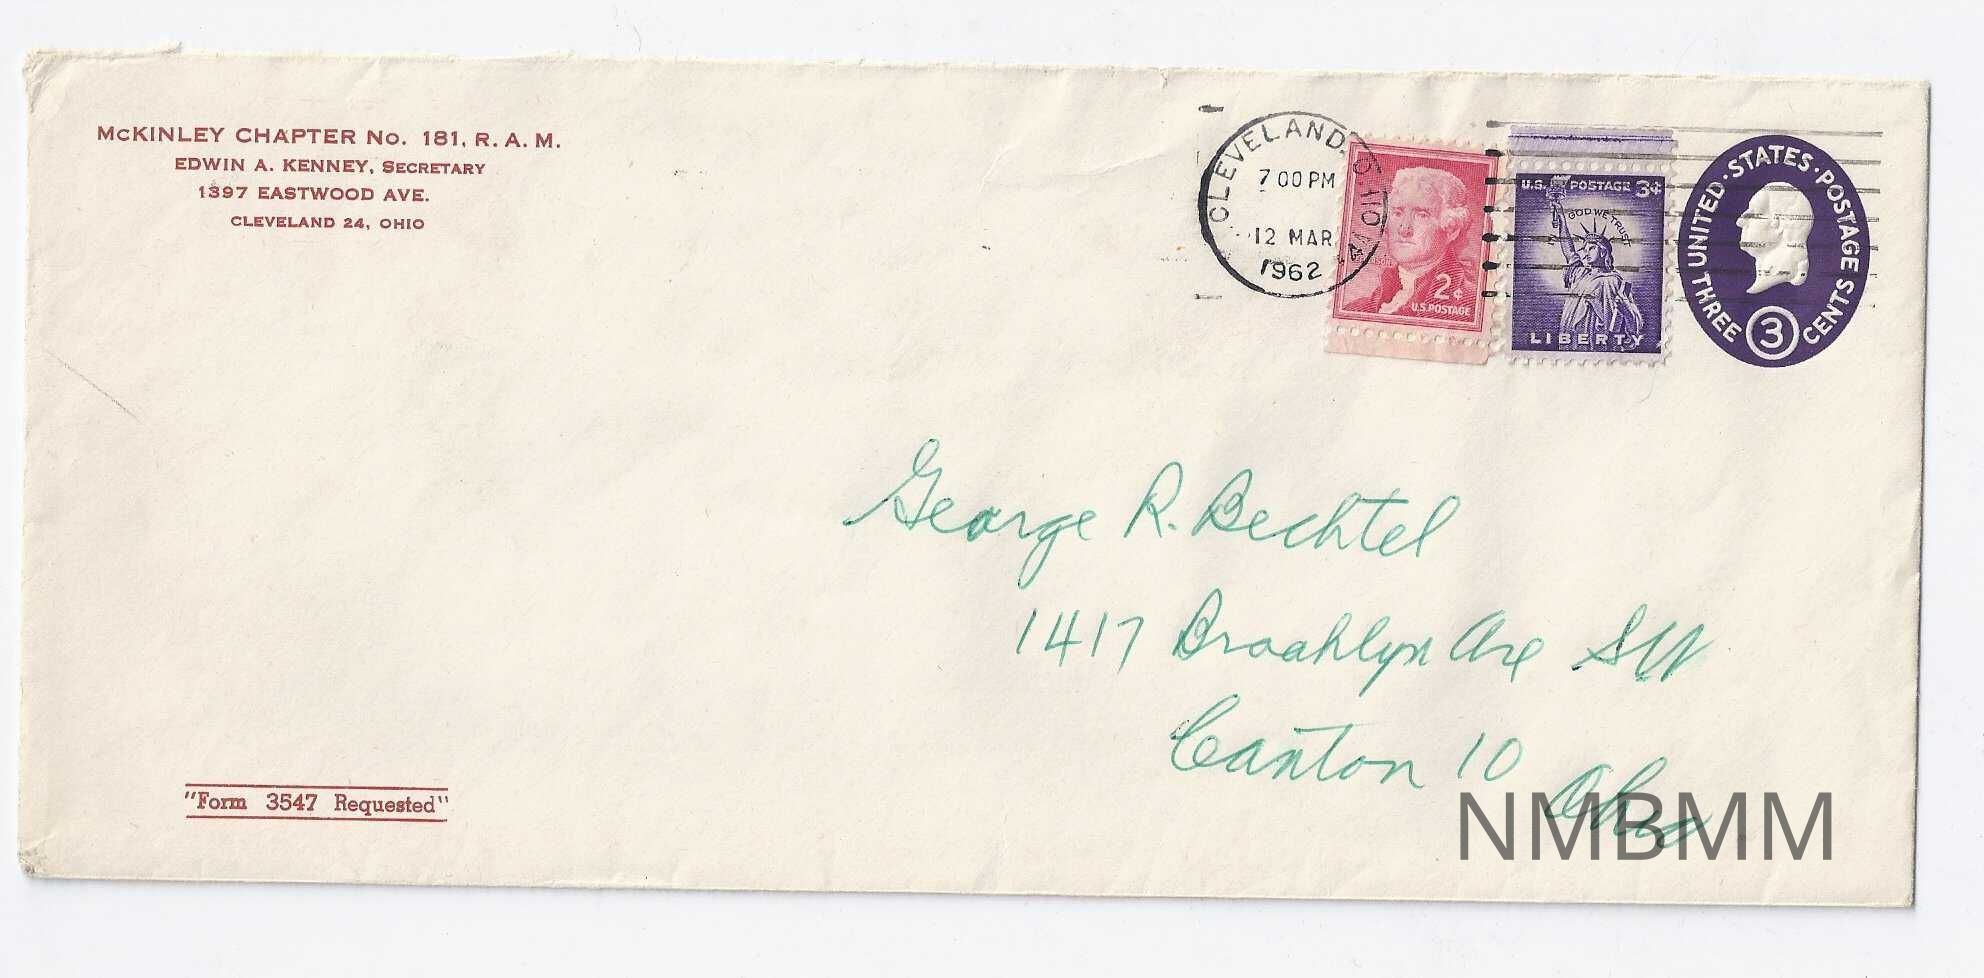 McKINLEY CHAPTER No. 181, R. A. M.
EDWIN A. KENNEY, SECRETARY
1397 EASTWOOD AVE.
CLEVELAND 24, OHIO
CLEVELAND, OHIO
7 00 PM
12 MAR
1962
2¢
U.S. POSTAGE
U.S. POSTAGE 3¢
IN GOD WE TRUST
LIBERTY
UNITED·STATES·POSTAGE
THREE 3 CENTS
George R. Bechtel
1417 Brooklyn Ave SW
Canton 10
Ohio
"Form 3547 Requested"
NMBMM